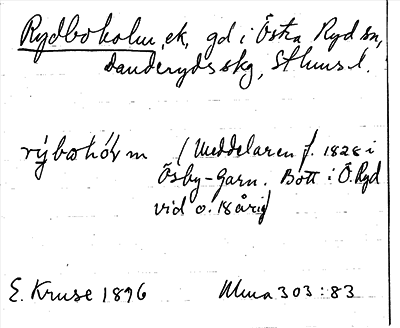 Rydboholm, ek, gd i Östra Ryd sn,
Danderyds skg, Sthms l.
(Meddelaren f. 1828 i
Ösby-Garn. Bott i Ö. Ryd
vid o. 18 årig)
E. Kruse 1896 Muua 303:83